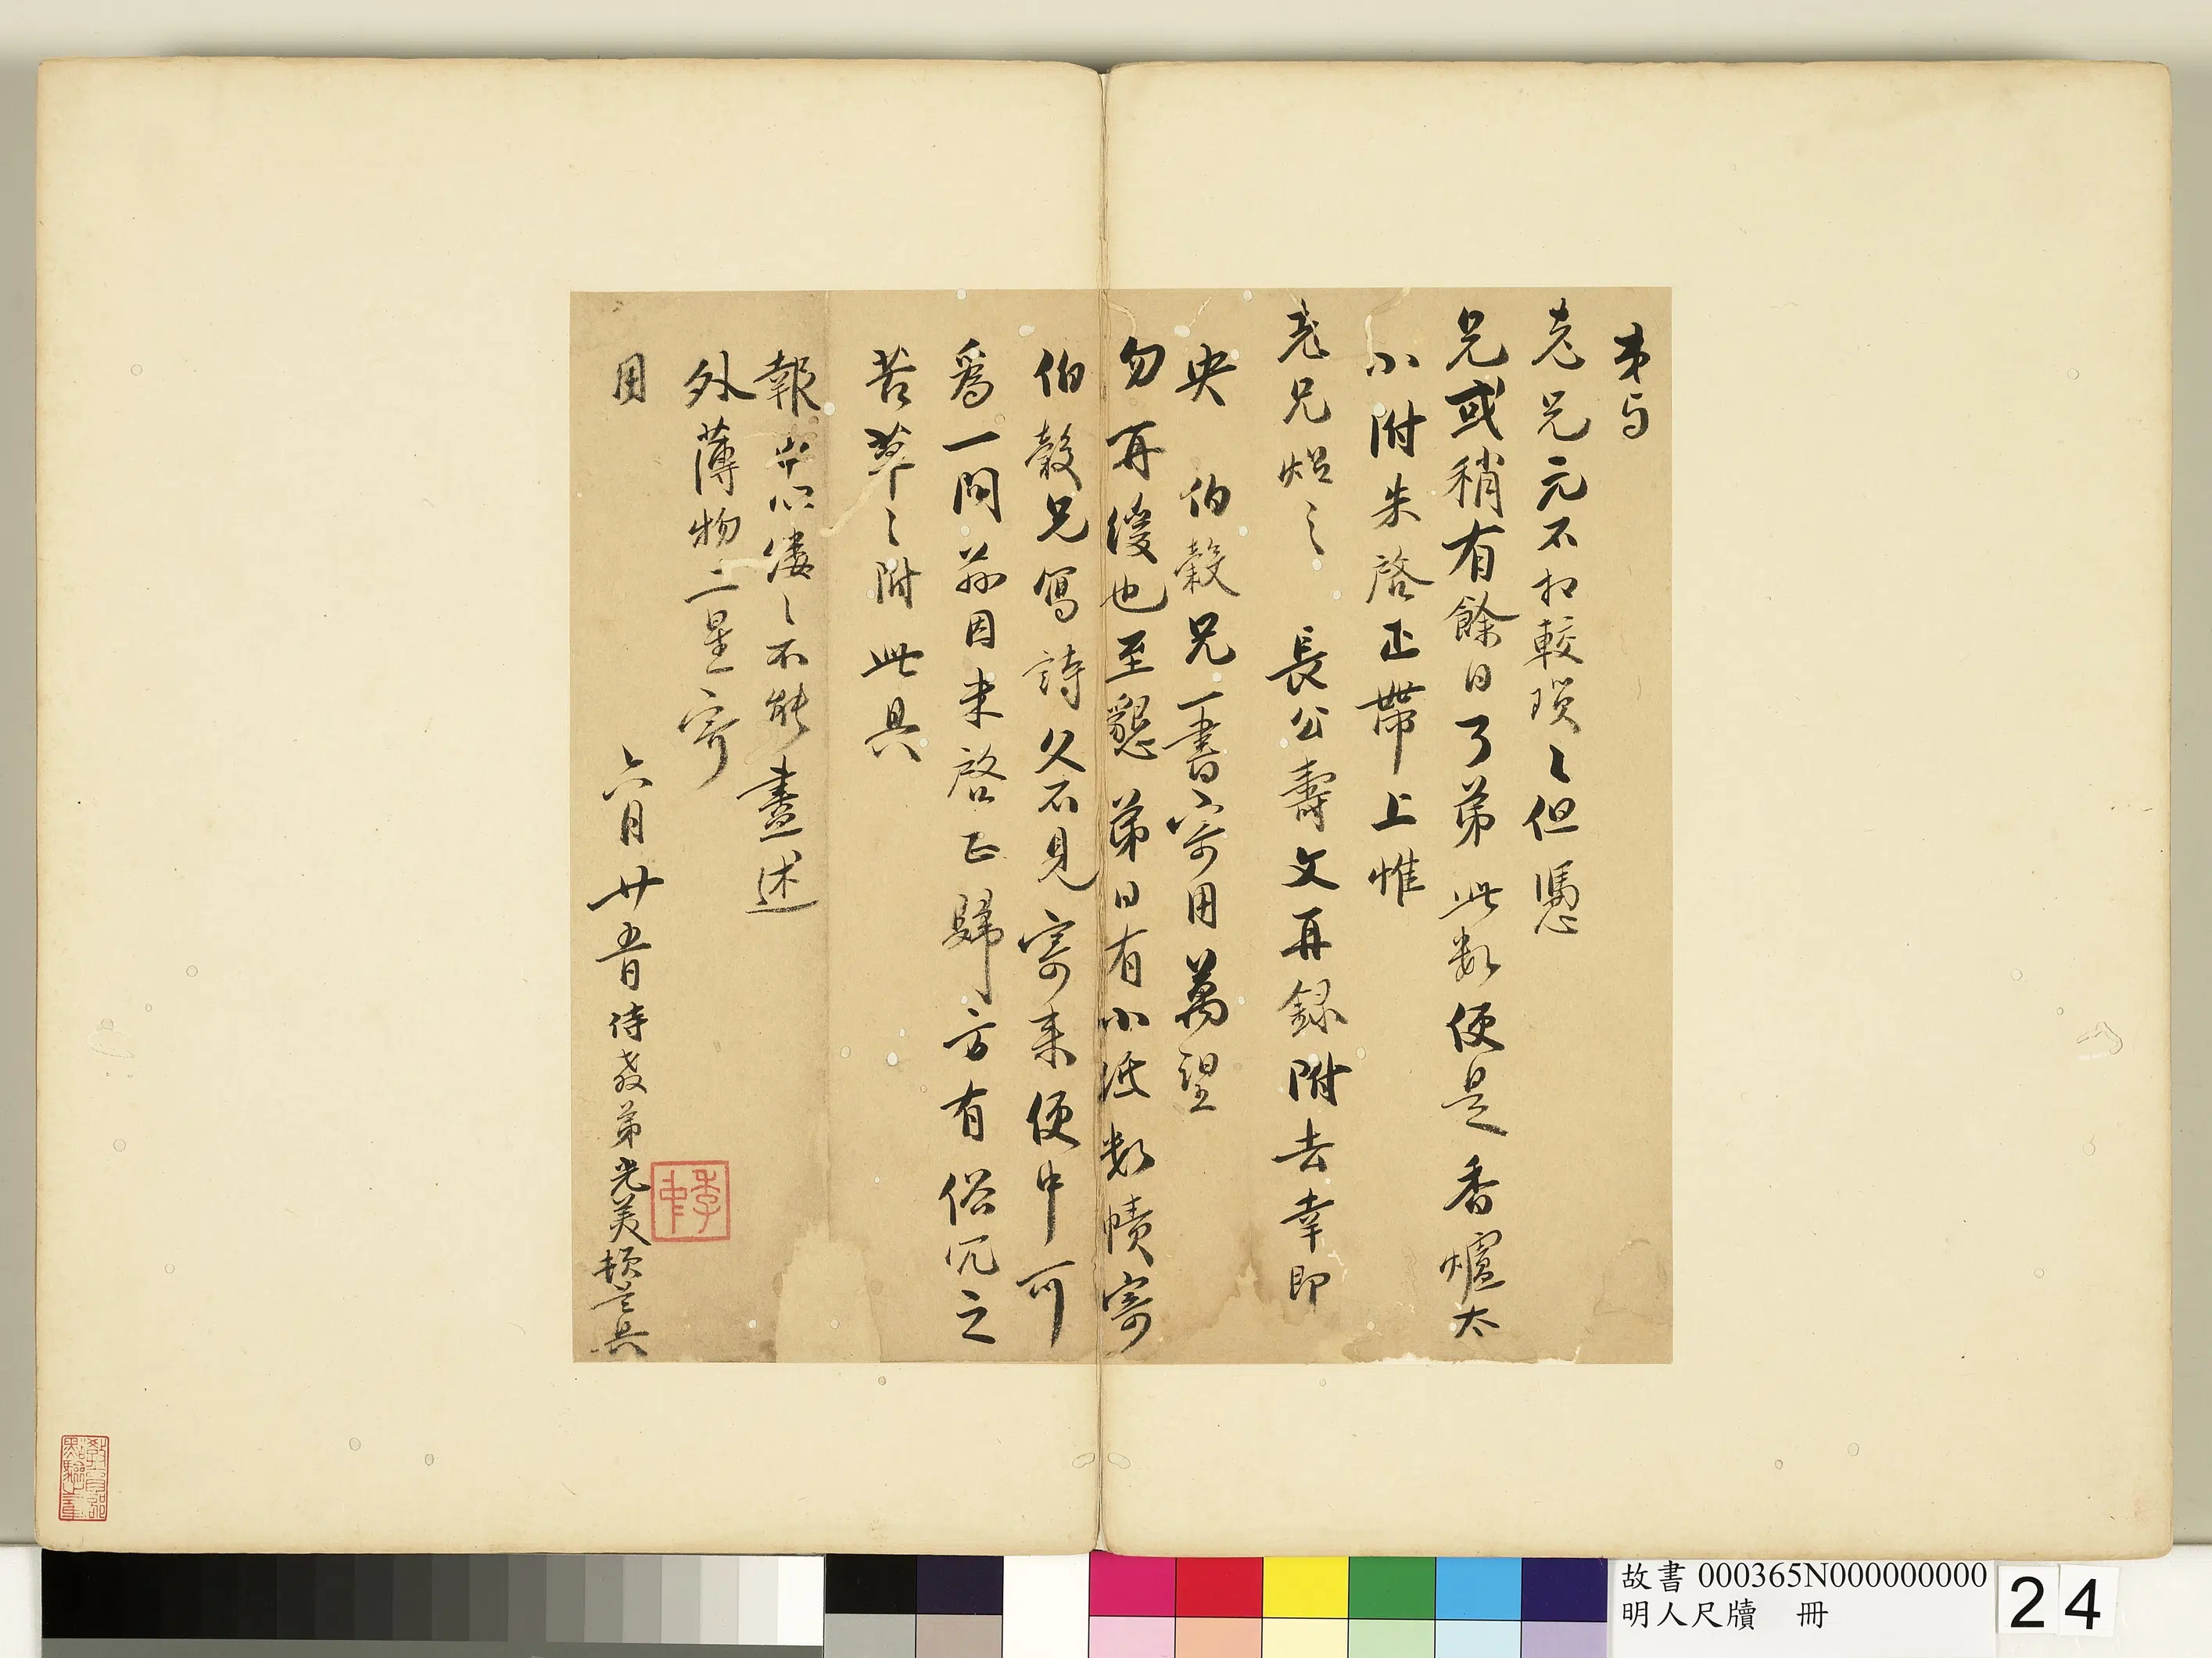 弟與
老兄元不扣較瑣々但憑
兄或稍有餘日了弟此數便是香爐太
小附朱啓正帶上惟
老兄
長公壽文再錄附去幸即
央 伯穀兄一書寄用萬望
勿再緩也至懇弟日有小紙數幀寄
伯穀兄寫詩久不見寄來便中可
爲一問前因朱啓正歸方有俗冗之
苦草々附此具
報中心縷々不能盡述
外薄物二星寄
用
六月廿五日侍教弟光美頓首具
故書 000365N000000000
明人尺牘 冊
24